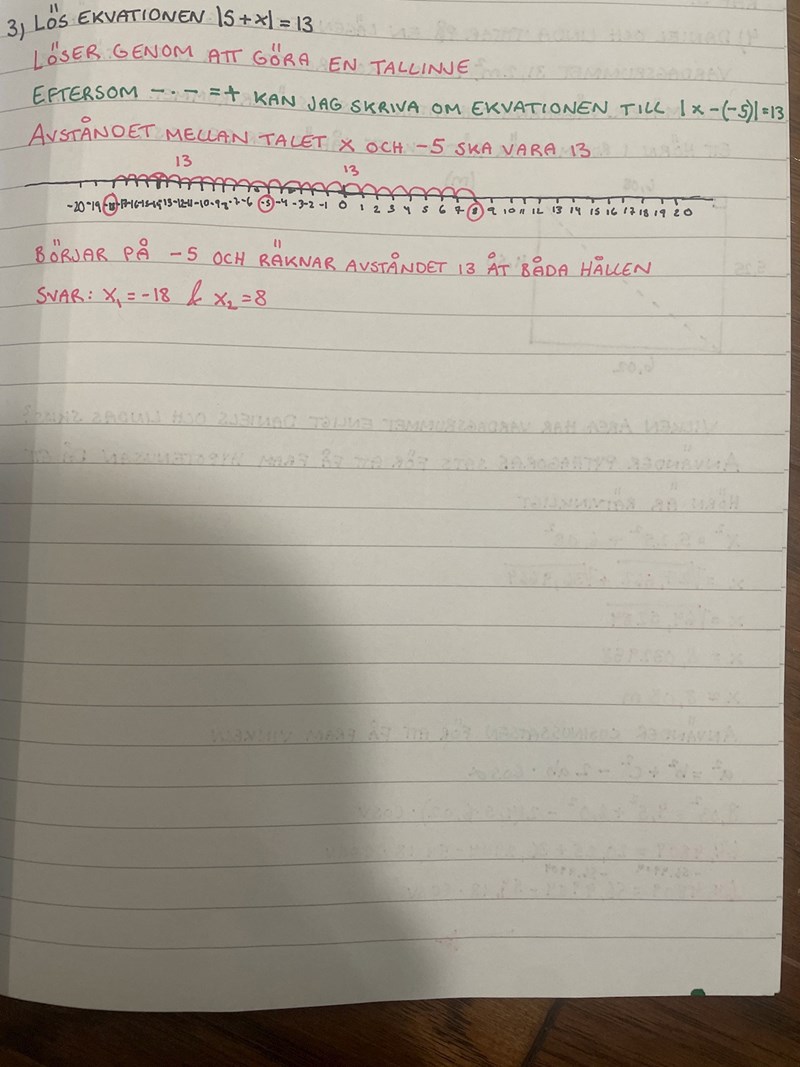 3) LÖS EKVATIONEN |5+x|=13
LÖSER GENOM ATT GÖRA EN TALLINJE
EFTERSOM -·- =+ KAN JAG SKRIVA OM EKVATIONEN TILL |x-(-5)|=13
AVSTÅNDET MELLAN TALET X OCH -5 SKA VARA 13
13 13
-20 -19 -18 -17 -16 -15 -14 -13 -12 -11 -10 -9 -8 -7 -6 -5 -4 -3 -2 -1 0 1 2 3 4 5 6 7 8 9 10 11 12 13 14 15 16 17 18 19 20
BÖRJAR PÅ -5 OCH RÄKNAR AVSTÅNDET 13 ÅT BÅDA HÅLLEN
SVAR: X₁=-18 & X₂=8